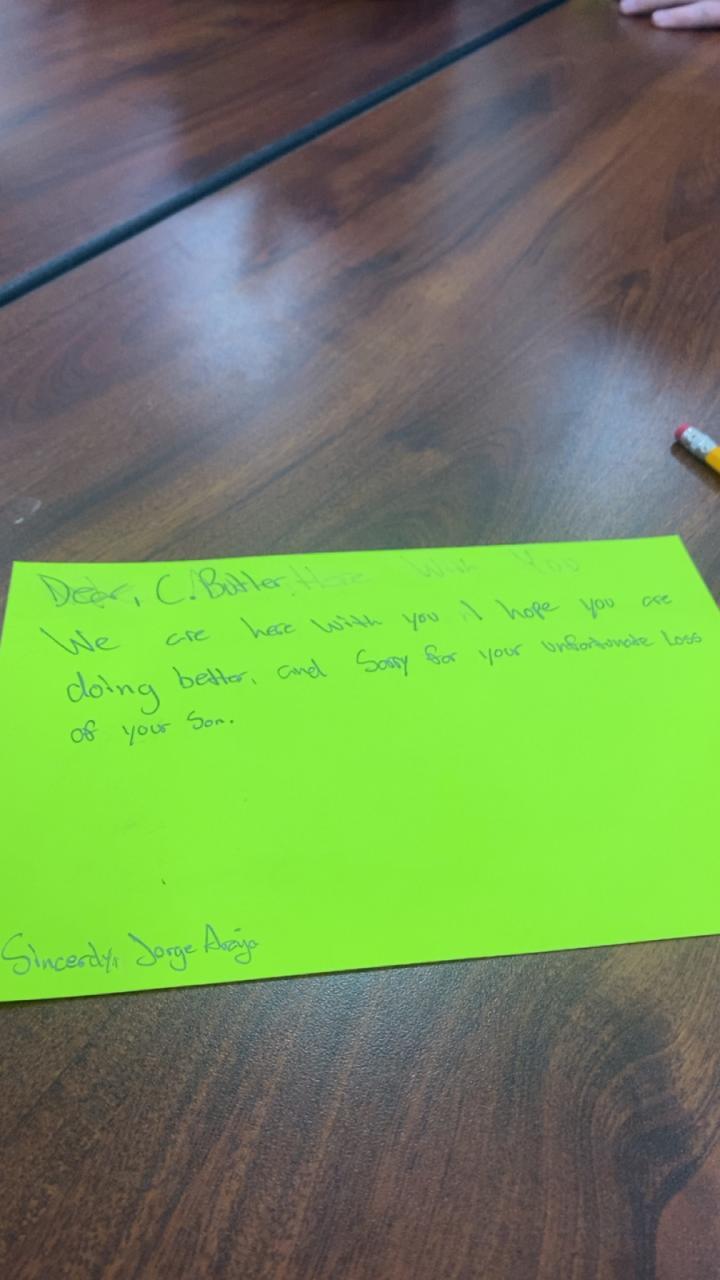 Dear, C. Butler Here With You
We are here with you I hope you are
doing better, and Sorry for your unfortunate Loss
of your Son.
Sincerdy, Jorge Araujo